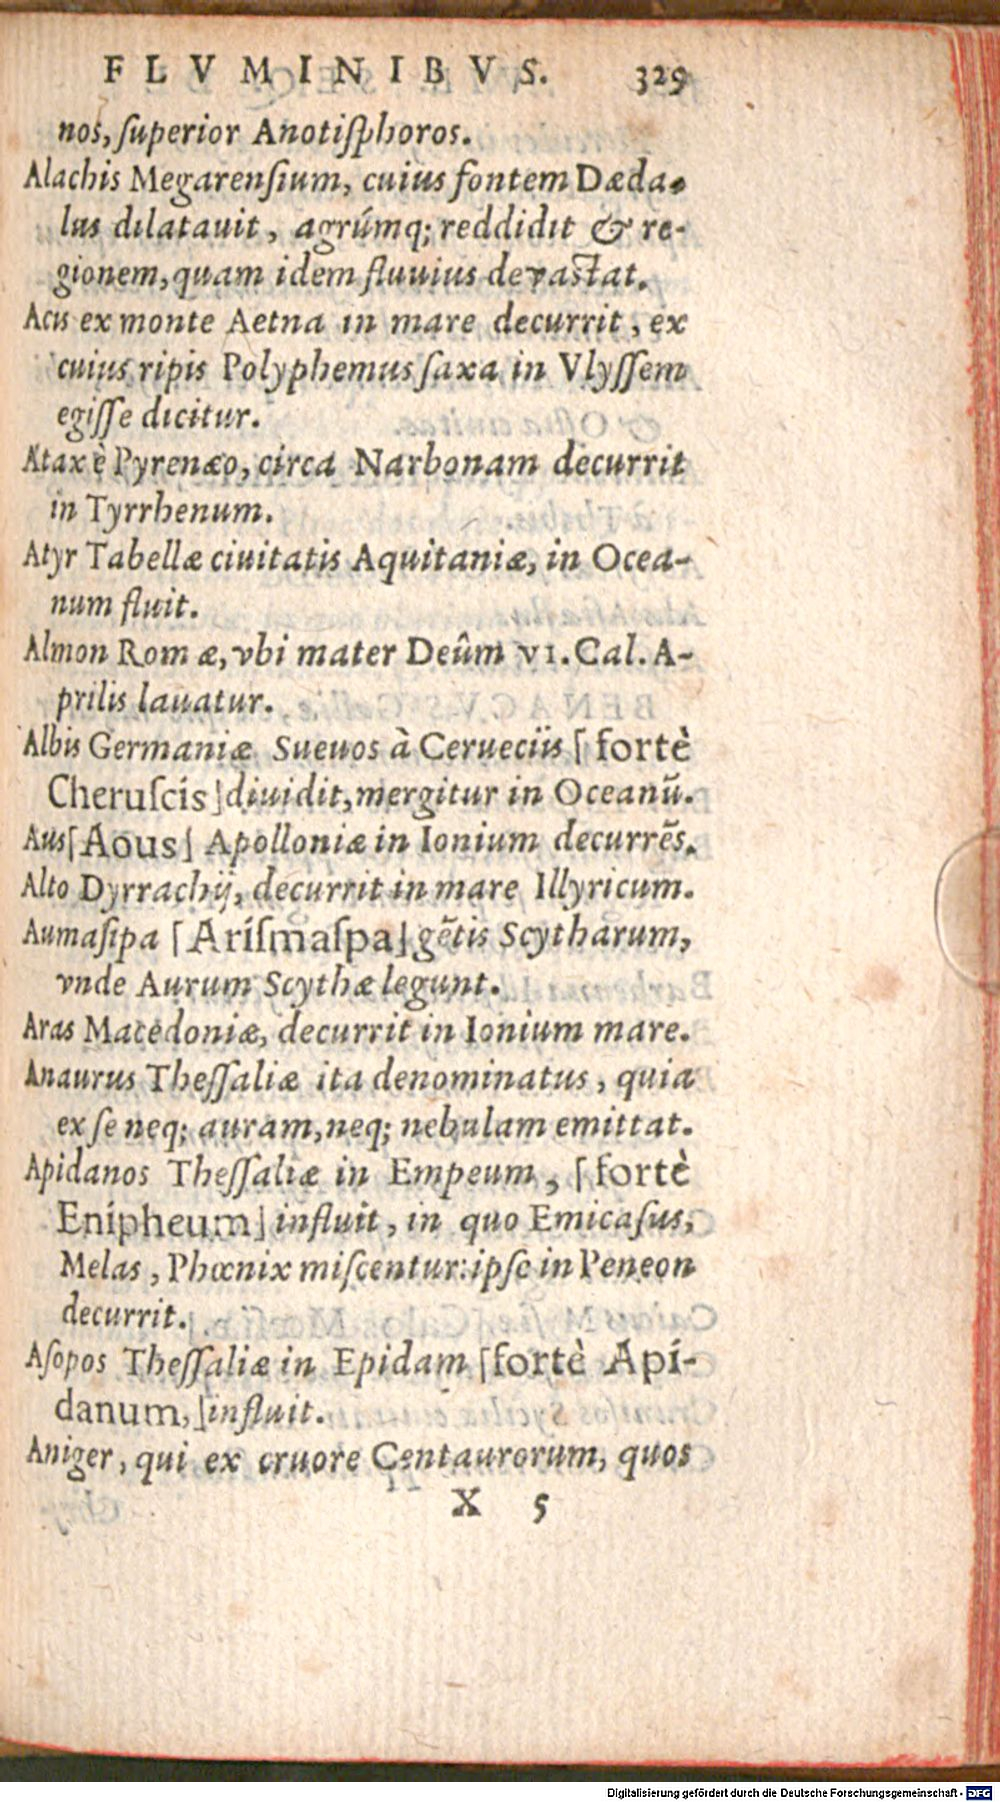 FLVMINIBVS. 329
nos, ſuperior Anotiſphoros.
Alachis Megarenſium, cuius fontem Dæda-
lus dilatauit, agrúmq; reddidit & re-
gionem, quam idem fluuius devastat.
Acis ex monte Aetna in mare decurrit, ex
cuius ripis Polyphemus ſaxa in Vlyſſem
egiſſe dicitur.
Atax è Pyrenæo, circa Narbonam decurrit
in Tyrrhenum.
Atyr Tabellæ ciuitatis Aquitaniæ, in Ocea-
num fluit.
Almon Romæ, vbi mater Deûm VI. Cal. A-
prilis lauatur.
Albis Germaniæ Sueuos à Cerueciis [fortè
Cheruſcis] diuidit, mergitur in Oceanũ.
Aus [Aous] Apolloniæ in Ionium decurrẽs.
Alto Dyrrachij, decurrit in mare Illyricum.
Aumaſipa [Ariſmaſpa] gẽtis Scytharum,
vnde Aurum Scythæ legunt.
Aras Macedoniæ, decurrit in Ionium mare.
Anaurus Theſſaliæ ita denominatus, quia
ex ſe neq; auram, neq; nebulam emittat.
Apidanos Theſſaliæ in Empeum, [fortè
Enipheum] influit, in quo Emicaſus,
Melas, Phœnix miſcentur: ipſe in Peneon
decurrit.
Aſopos Theſſaliæ in Epidam [fortè Api-
danum,] influit.
Aniger, qui ex cruore Centaurorum, quos
X 5
Digitalisierung gefördert durch die Deutsche Forschungsgemeinschaft - DFG